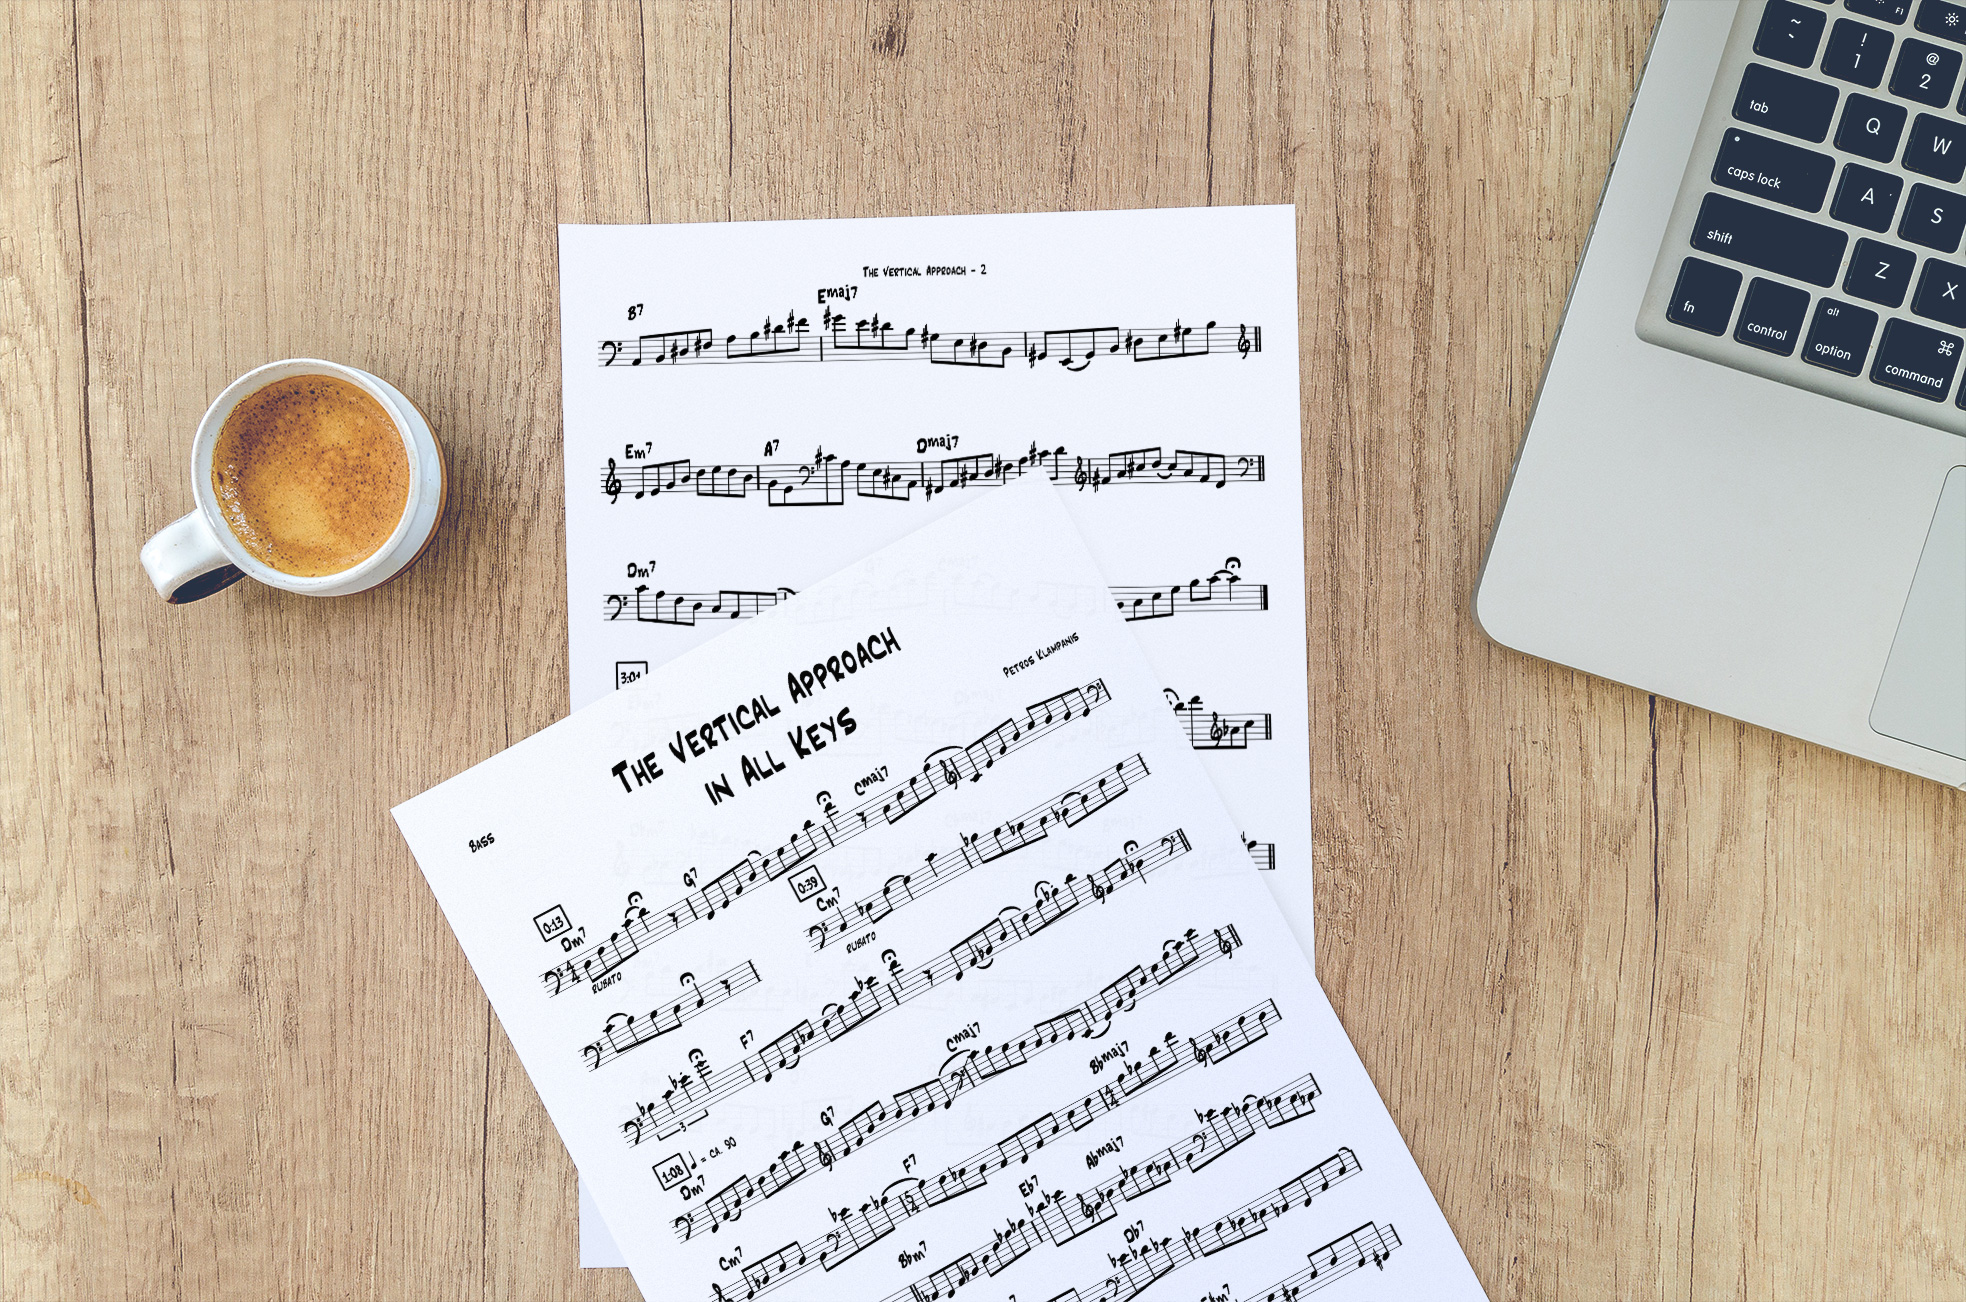 The Vertical Approach - 2
B7 Emaj7
Em7 A7 Dmaj7
Dm7
3:01
The Vertical Approach
in All Keys
Petros Klampanis
Bass
0:13
Dm7 G7 Cmaj7
4
4
Rubato
0:39
Cm7
Rubato
F7
3
1:08 = ca. 90
Dm7 G7 Cmaj7
Cm7 F7 Bbmaj7
5
4
4
4
Bbm7 Eb7 Abmaj7
Db7
~
`
!
1
@
2
F1
tab
Q
W
caps lock
A
S
shift
Z
X
fn
control
alt
option
⌘
command